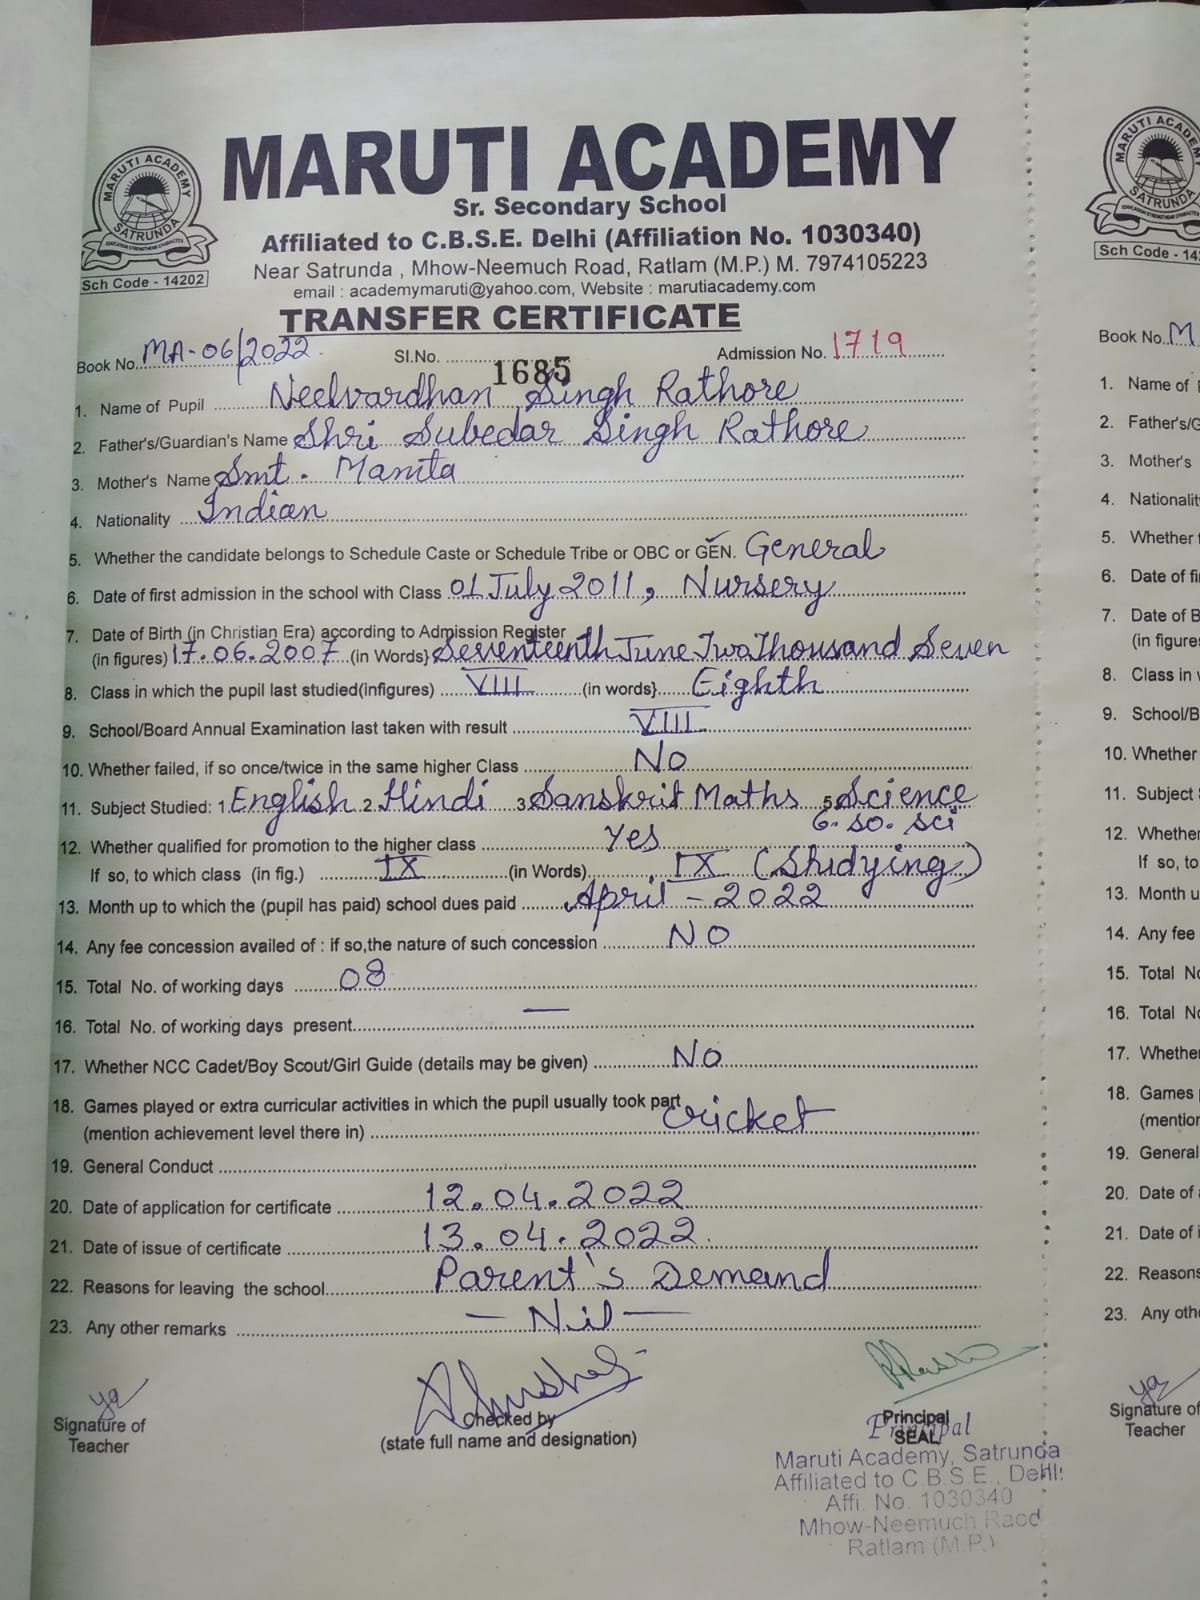 MARUTI ACADEMY
Sr. Secondary School
Affiliated to C.B.S.E. Delhi (Affiliation No. 1030340)
Near Satrunda , Mhow-Neemuch Road, Ratlam (M.P.) M. 7974105223
email : academymaruti@yahoo.com, Website : marutiacademy.com
MARUTI ACADEMY
SATRUNDA
EDUCATION STRENGTHENS CHARACTER
Sch Code - 14202
TRANSFER CERTIFICATE
Book No. MA-06/2022 Sl.No. 1685 Admission No. 1719
1. Name of Pupil Neelvardhan Singh Rathore
2. Father's/Guardian's Name Shri Subedar Singh Rathore
3. Mother's Name Smt. Mamta
4. Nationality Indian
5. Whether the candidate belongs to Schedule Caste or Schedule Tribe or OBC or GEN. General
6. Date of first admission in the school with Class 01 July 2011, Nursery
7. Date of Birth (in Christian Era) according to Admission Register
(in figures) 17.06.2007 (in Words} Seventeenth June Two Thousand Seven
8. Class in which the pupil last studied(infigures) VIII (in words} Eighth
9. School/Board Annual Examination last taken with result VIII
10. Whether failed, if so once/twice in the same higher Class No
11. Subject Studied: 1. English 2. Hindi 3 Sanskrit Maths 5 Science
6. so. sci
12. Whether qualified for promotion to the higher class yes
If so, to which class (in fig.) IX (in Words) IX (Studying)
13. Month up to which the (pupil has paid) school dues paid April - 2022
14. Any fee concession availed of : if so,the nature of such concession NO
15. Total No. of working days 08
16. Total No. of working days present —
17. Whether NCC Cadet/Boy Scout/Girl Guide (details may be given) No
18. Games played or extra curricular activities in which the pupil usually took part
(mention achievement level there in) cricket
19. General Conduct
20. Date of application for certificate 12.04.2022
21. Date of issue of certificate 13.04.2022.
22. Reasons for leaving the school Parent's Demand
23. Any other remarks — Nil —
Signature of
Teacher
Checked by
(state full name and designation)
Principal
SEAL
Principal
Maruti Academy, Satrunda
Affiliated to C.B.S.E., Delhi
Affi. No. 1030340
Mhow-Neemuch Road
Ratlam (M.P.)
MARUTI ACADEMY
SATRUNDA
Sch Code - 14
Book No. M
1. Name of
2. Father's/G
3. Mother's
4. Nationalit
5. Whether
6. Date of fi
7. Date of B
(in figure
8. Class in
9. School/B
10. Whether
11. Subject
12. Whether
If so, to
13. Month u
14. Any fee
15. Total No
16. Total No
17. Whether
18. Games
(mention
19. General
20. Date of
21. Date of i
22. Reasons
23. Any oth
Signature of
Teacher